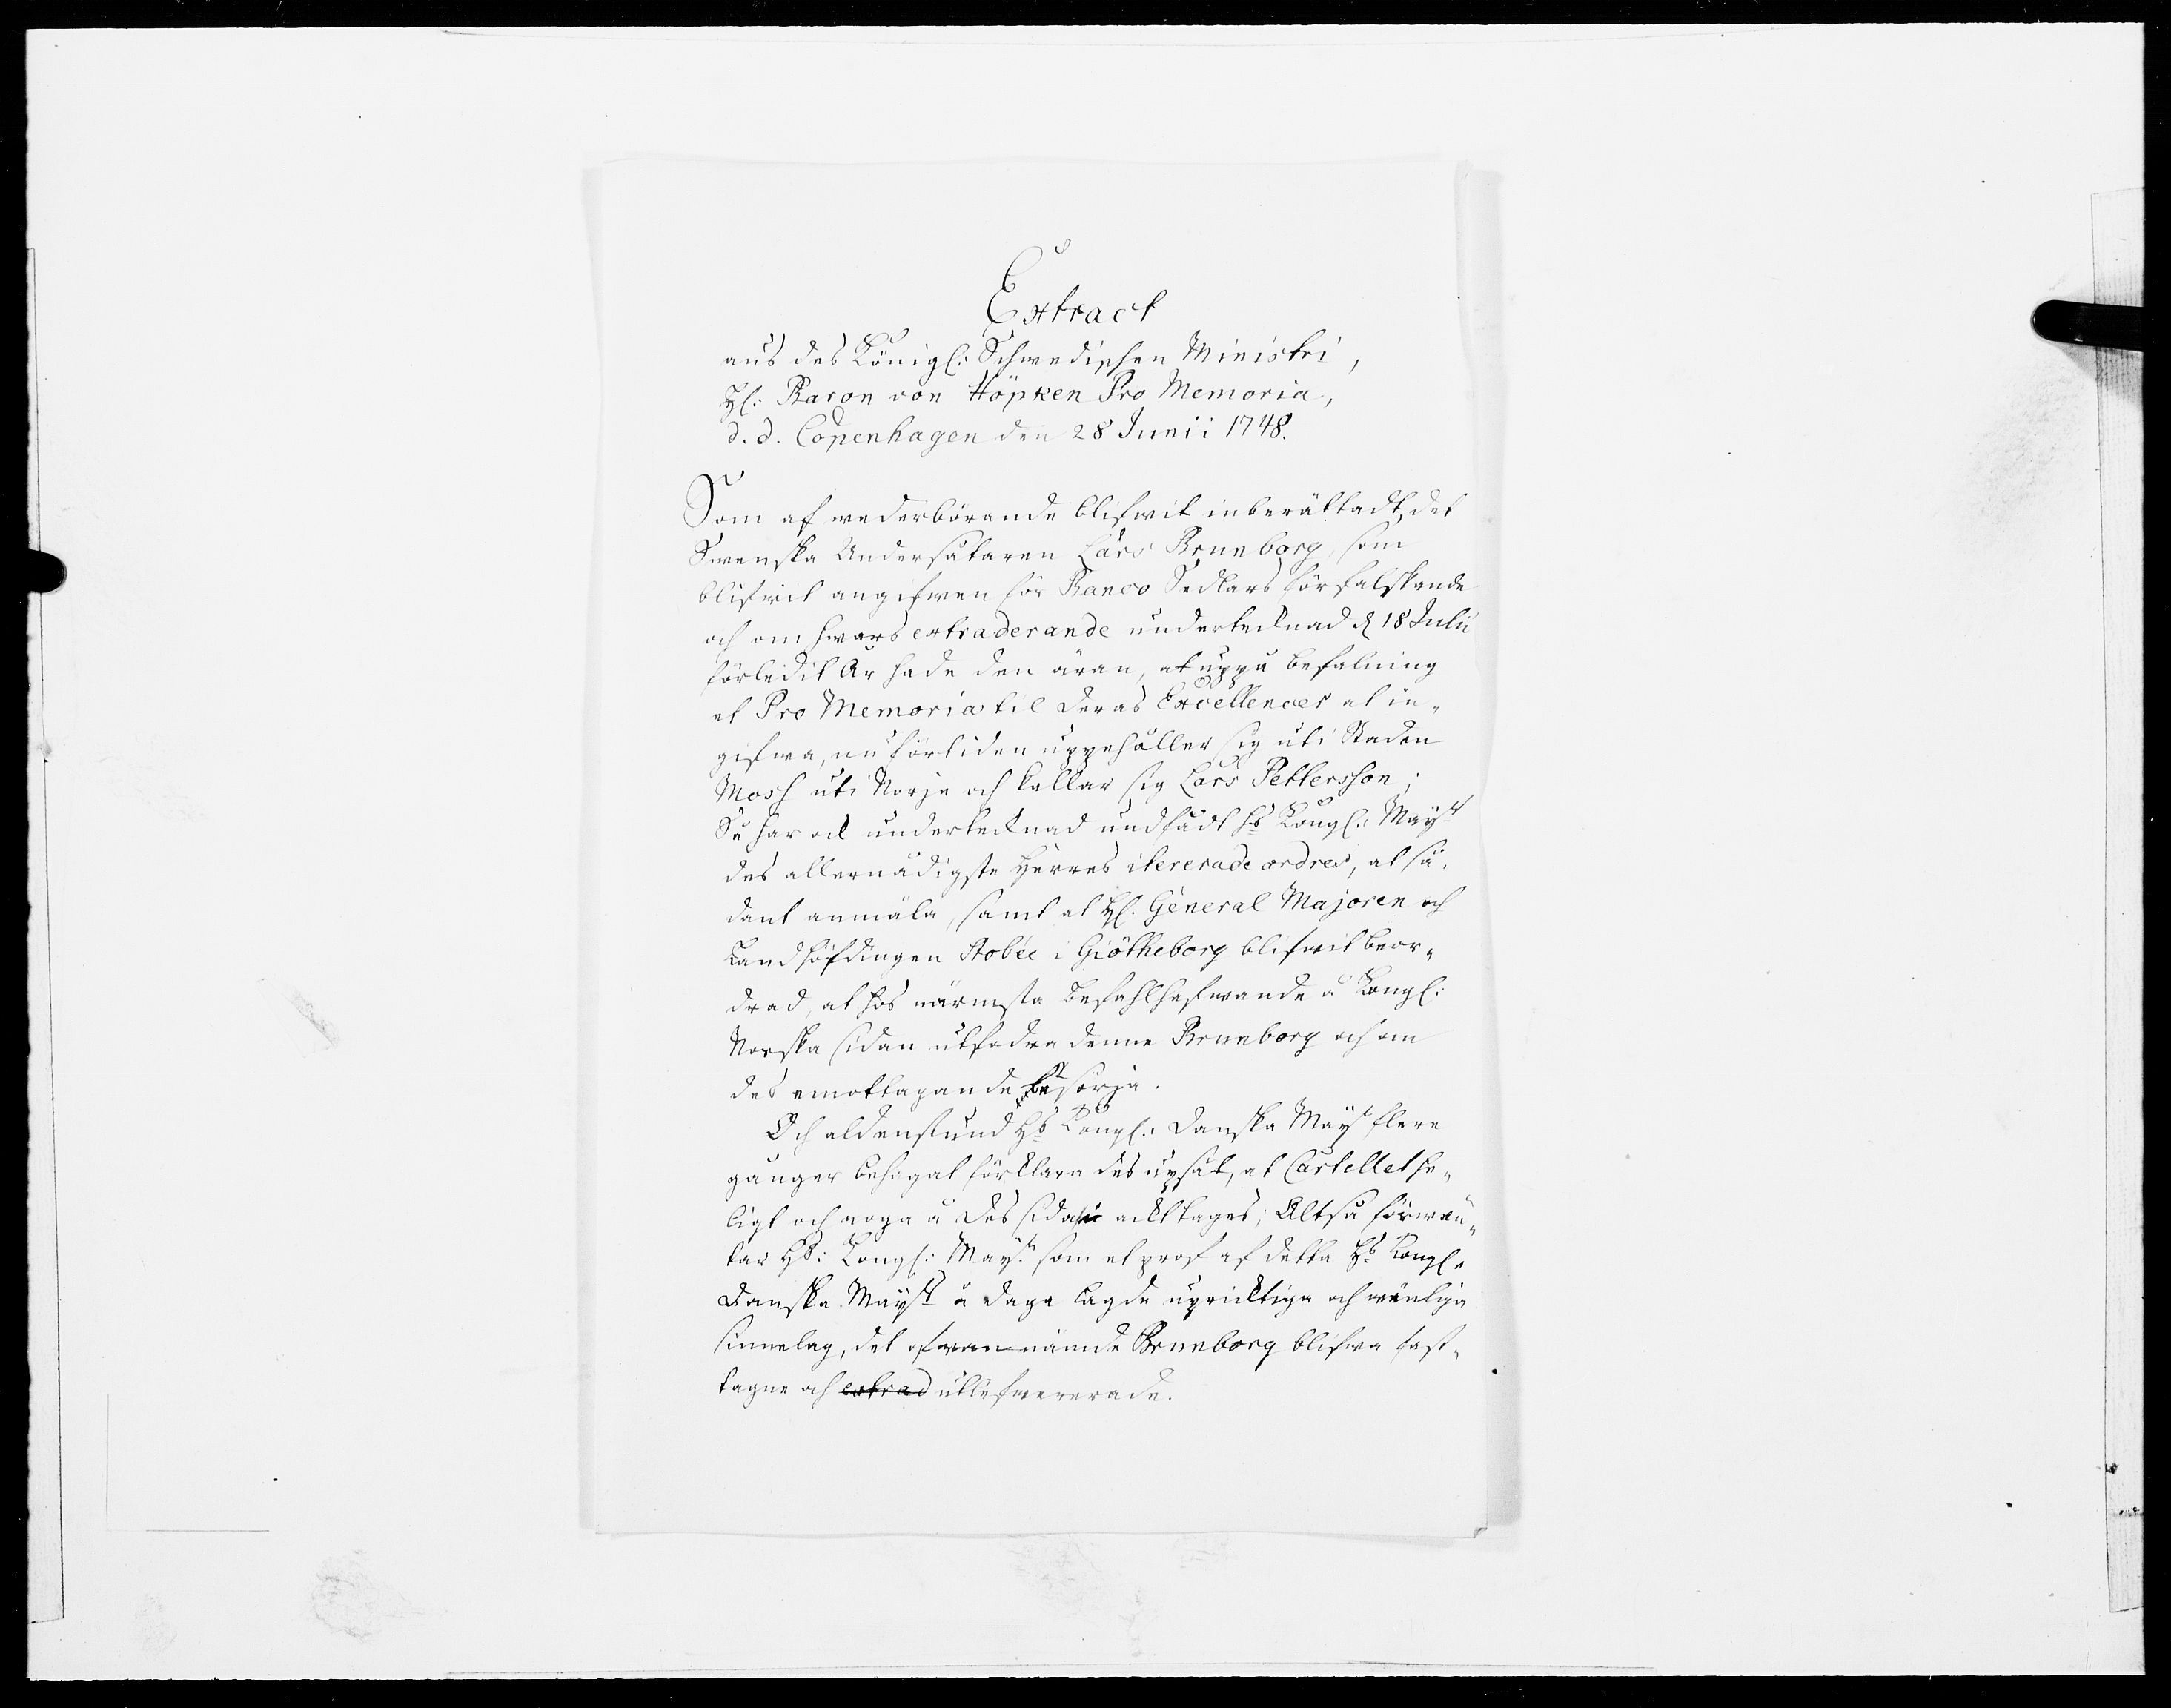 Extract
aus des Königl: Schwedischen Ministri,
H: Baron von Höpken Pro Memoria,
d. d. Copenhagen den 28 Junii 1748.
Som af wederbörande blifwit inberättadt, det
Swenska Undersåtaren Lars Brunborg, som
blifwit angifwen för Banco Sedlars förfalskande
och om hwars extraderande undertecknad d 18 Julii
förledit År hade den äran, at uppå befalning
et Pro Memoria til Deras Excellencer at in-
gifwa, nu förtiden uppehåller sig uti Staden
Mosh uti Norje och kallar sig Lars Pettersson;
Så har ock undertecknad undfådt Hs Kongl: Mayst
des allernådigste Herres itererade ordres, at så-
dant anmäla, samt at H: General Majoren och
Landshöfdingen Stobée i Giötheborg blifwit beor-
drad, at hos närmsta befahlhafwande å Kongl:
Norska sidan utfodra denne Brunborg och om
des emottagande besörja.
Och aldenstund Hs Kongl: Danska Mayst flere
gånger behagat förklara des upsåt, at Cartellet he-
ligt och noga å des sida ackttages; Altså förwän-
tar Hs: Kongl: Mayst som et prof af detta Hs Kongl:
Danska Mayst å daga lagde uprictiga och wänliga
sinnelag, det ofwannämnde Brunborg blifwa fast-
tagne och extrad utlefwererade.